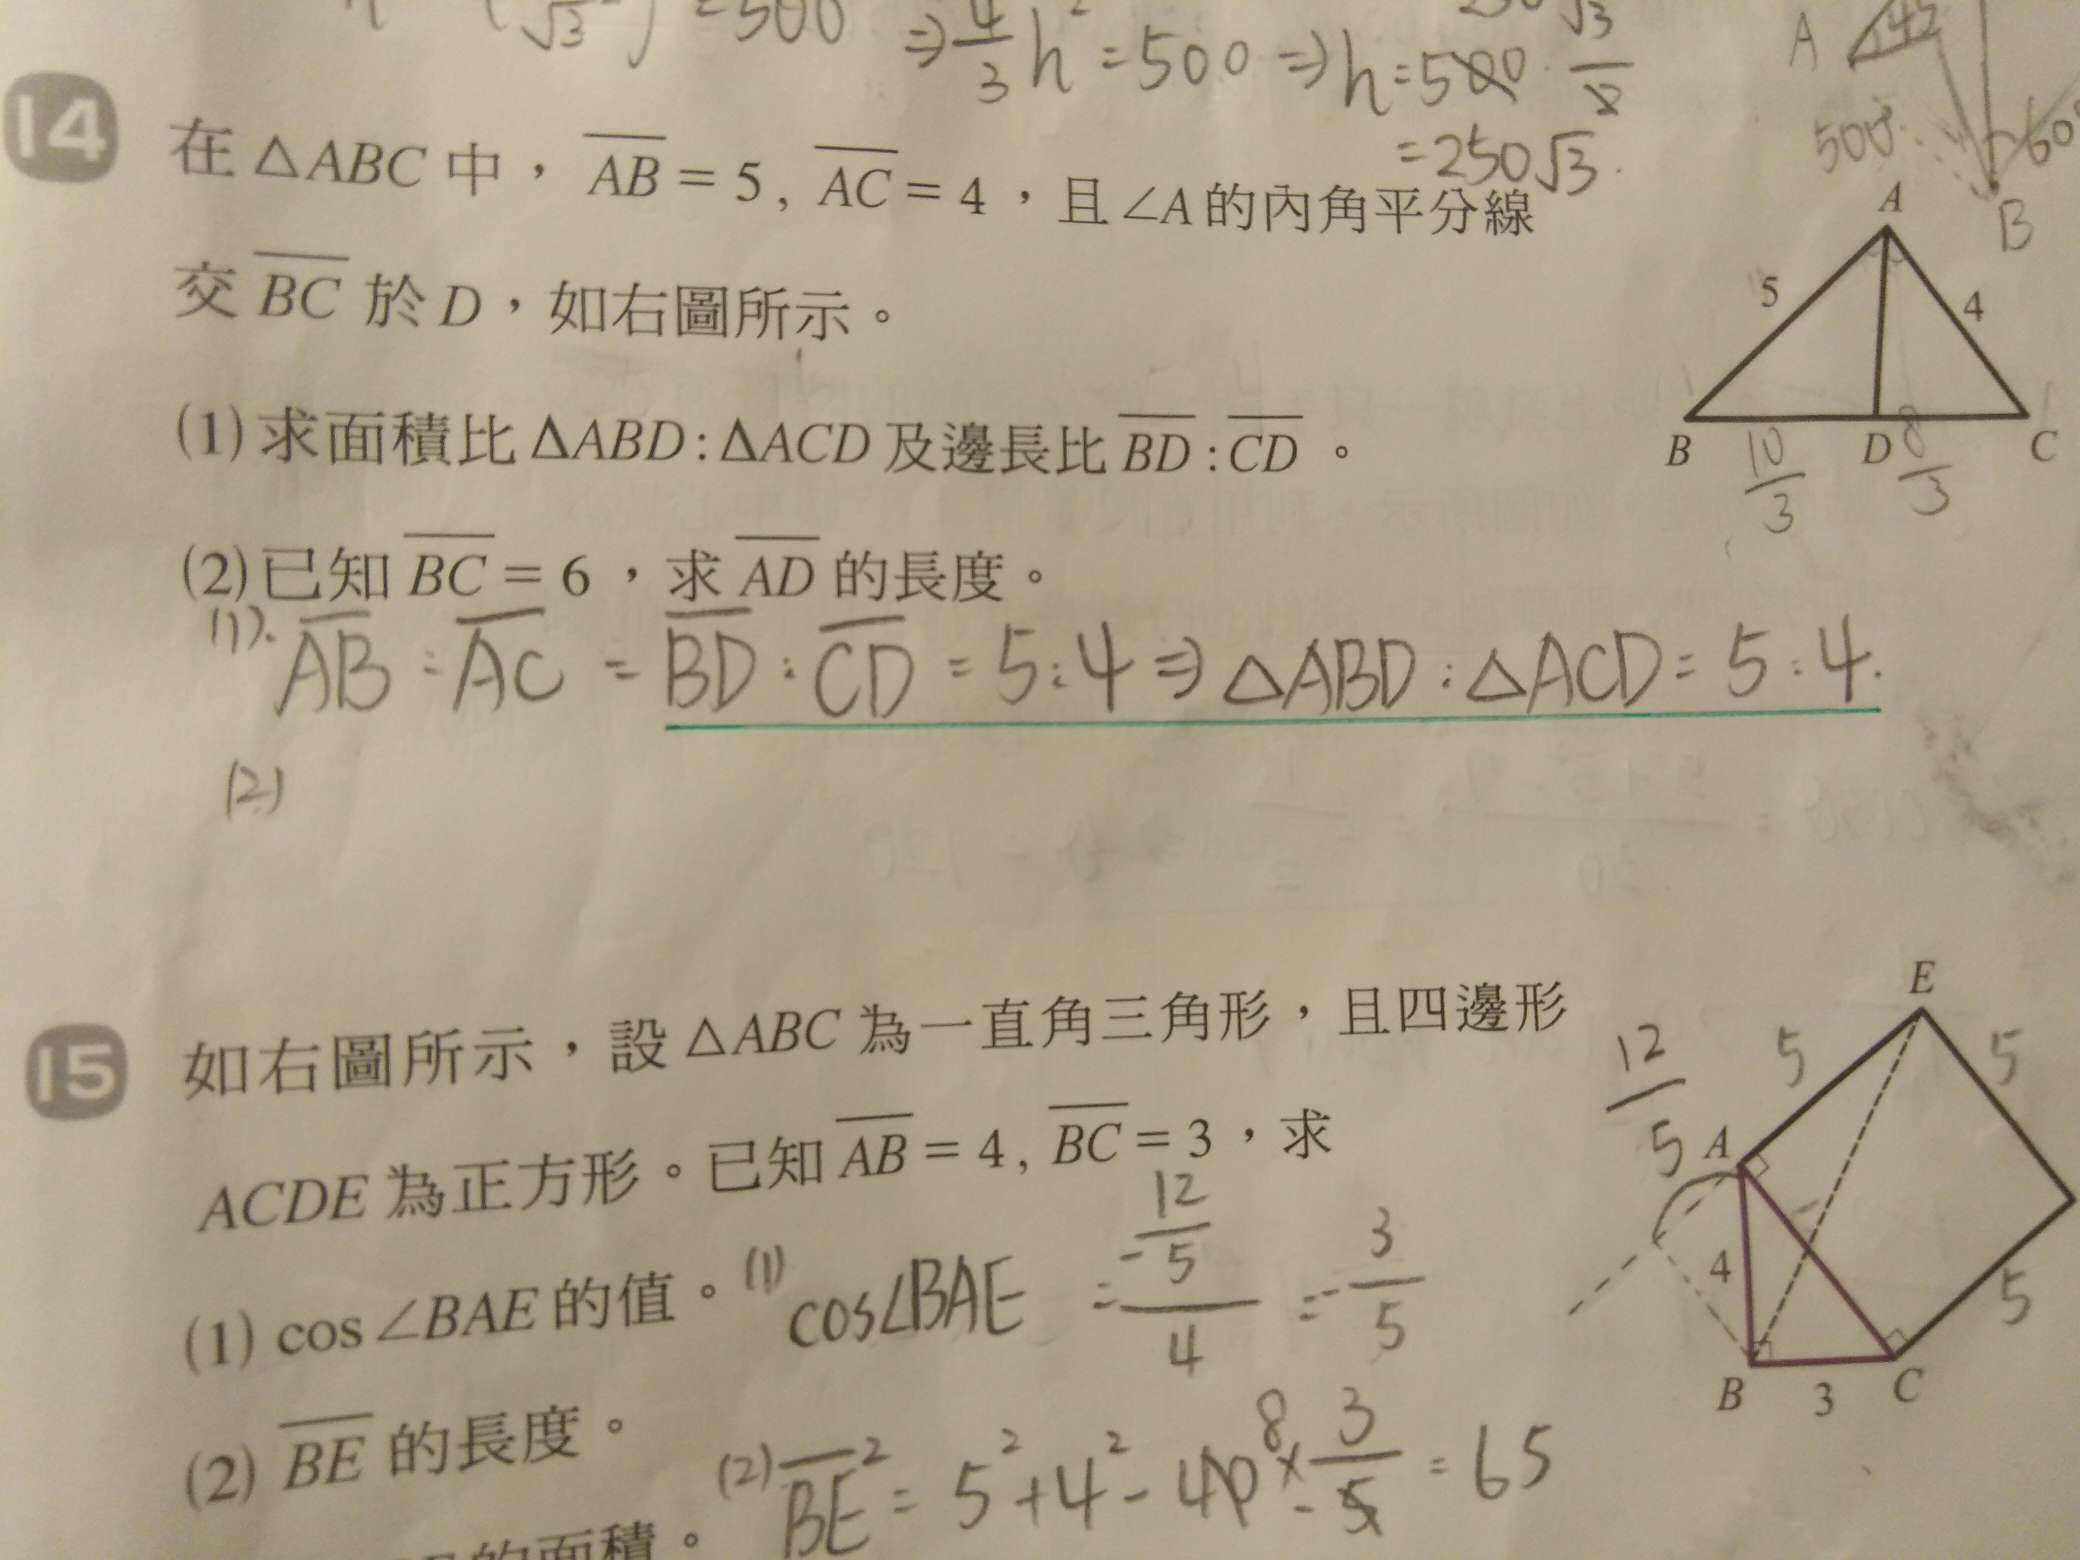 = 500 ⇒ 4/3 h² = 500 ⇒ h = 500 · √3/2
= 250√3.
A 45
500
60°
B
14 在△ABC中，AB = 5, AC = 4，且∠A的內角平分線
交 BC 於 D，如右圖所示。
(1) 求面積比 ΔABD : ΔACD 及邊長比 BD : CD 。
(2) 已知 BC = 6，求 AD 的長度。
A
5
4
B
D
C
10/3
8/3
(1). AB : AC = BD : CD = 5 : 4 ⇒ △ABD : △ACD = 5 : 4.
(2)
15 如右圖所示，設△ABC 為一直角三角形，且四邊形
ACDE 為正方形。已知 AB = 4, BC = 3，求
(1) cos∠BAE 的值。
(1) cos∠BAE = -12/5 / 4 = -3/5
(2) BE 的長度。
(2) BE² = 5² + 4² - 40 8 × -3/5 = 65
的面積。
E
12/5
5
5
A
4
5
B
3
C